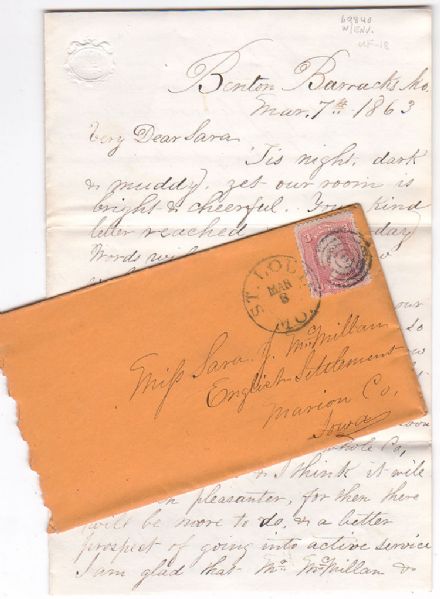 69840
W/ENV.
UF-18
Benton Barracks Mo.
Mar. 7th 1863
Very Dear Sara
'Tis night, dark
& muddy, yet our room is
bright & cheerful. Your kind
letter reached
day
Words
ST. LOUIS
MAR
8
MO.
3
our
so
Miss Sara J. McMillan
English Settlement
Marion Co,
Iowa
whole Co,
& I think it will
pleasanter, for then there
will be more to do, & a better
prospect of going into active service
I am glad that Mr McMillan &